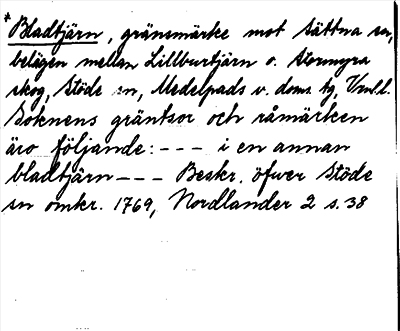 * Bladtjärn, gränsmärke mot Sättna sn,
belägen mellan Lillburtjärn o. Stormyra
skog, Stöde sn, Medelpads v. doms. tg, Vnl.l.
Soknens gräntsor och råmärken
äro följande: --- i en annan
bladtjärn --- Beskr. öfwer Stöde
sn omkr. 1769, Nordlander 2 s. 38